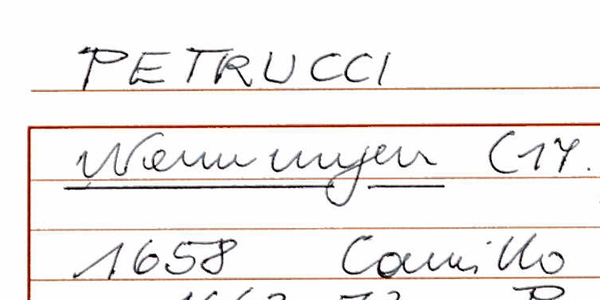 PETRUCCI
Wemmingen (17.
1658 Camillo